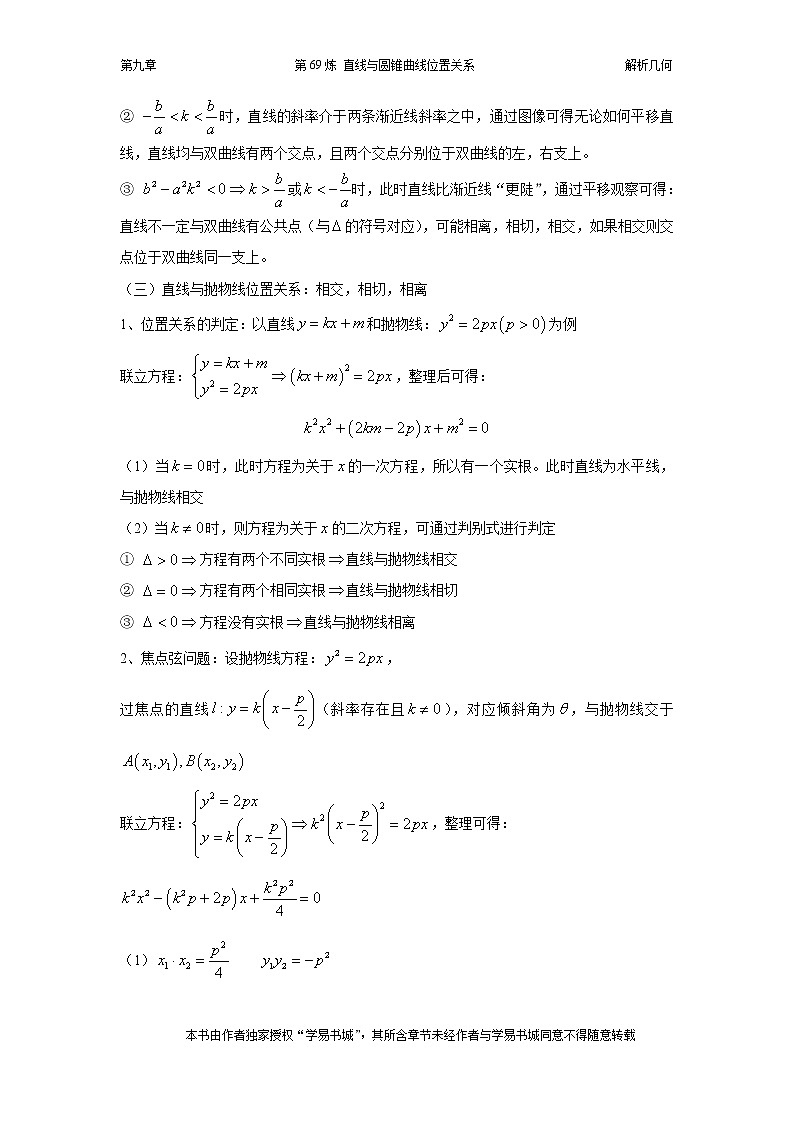 第九章 第69炼 直线与圆锥曲线位置关系 解析几何
② $-\frac{b}{a}<k<\frac{b}{a}$时，直线的斜率介于两条渐近线斜率之中，通过图像可得无论如何平移直
线，直线均与双曲线有两个交点，且两个交点分别位于双曲线的左，右支上。
③ $b^2-a^2k^2<0\Rightarrow k>\frac{b}{a}$或$k<-\frac{b}{a}$时，此时直线比渐近线“更陡”，通过平移观察可得：
直线不一定与双曲线有公共点（与Δ的符号对应），可能相离，相切，相交，如果相交则交
点位于双曲线同一支上。
（三）直线与抛物线位置关系：相交，相切，相离
1、位置关系的判定：以直线$y=kx+m$和抛物线：$y^2=2px(p>0)$为例
联立方程：$\begin{cases}y=kx+m\\y^2=2px\end{cases}\Rightarrow(kx+m)^2=2px$，整理后可得：
$k^2x^2+(2km-2p)x+m^2=0$
（1）当$k=0$时，此时方程为关于$x$的一次方程，所以有一个实根。此时直线为水平线，
与抛物线相交
（2）当$k\neq0$时，则方程为关于$x$的二次方程，可通过判别式进行判定
① $\Delta>0\Rightarrow$方程有两个不同实根$\Rightarrow$直线与抛物线相交
② $\Delta=0\Rightarrow$方程有两个相同实根$\Rightarrow$直线与抛物线相切
③ $\Delta<0\Rightarrow$方程没有实根$\Rightarrow$直线与抛物线相离
2、焦点弦问题：设抛物线方程：$y^2=2px$，
过焦点的直线$l:y=k\left(x-\frac{p}{2}\right)$（斜率存在且$k\neq0$），对应倾斜角为$\theta$，与抛物线交于
$A(x_1,y_1),B(x_2,y_2)$
联立方程：$\begin{cases}y^2=2px\\y=k\left(x-\frac{p}{2}\right)\end{cases}\Rightarrow k^2\left(x-\frac{p}{2}\right)^2=2px$，整理可得：
$k^2x^2-(k^2p+2p)x+\frac{k^2p^2}{4}=0$
（1）$x_1\cdot x_2=\frac{p^2}{4}$ $y_1y_2=-p^2$
本书由作者独家授权“学易书城”，其所含章节未经作者与学易书城同意不得随意转载